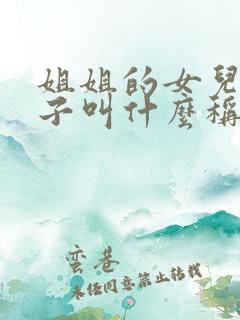 姐姐的女兒
子叫什麼稱
蛮巷
未经同意禁止转载